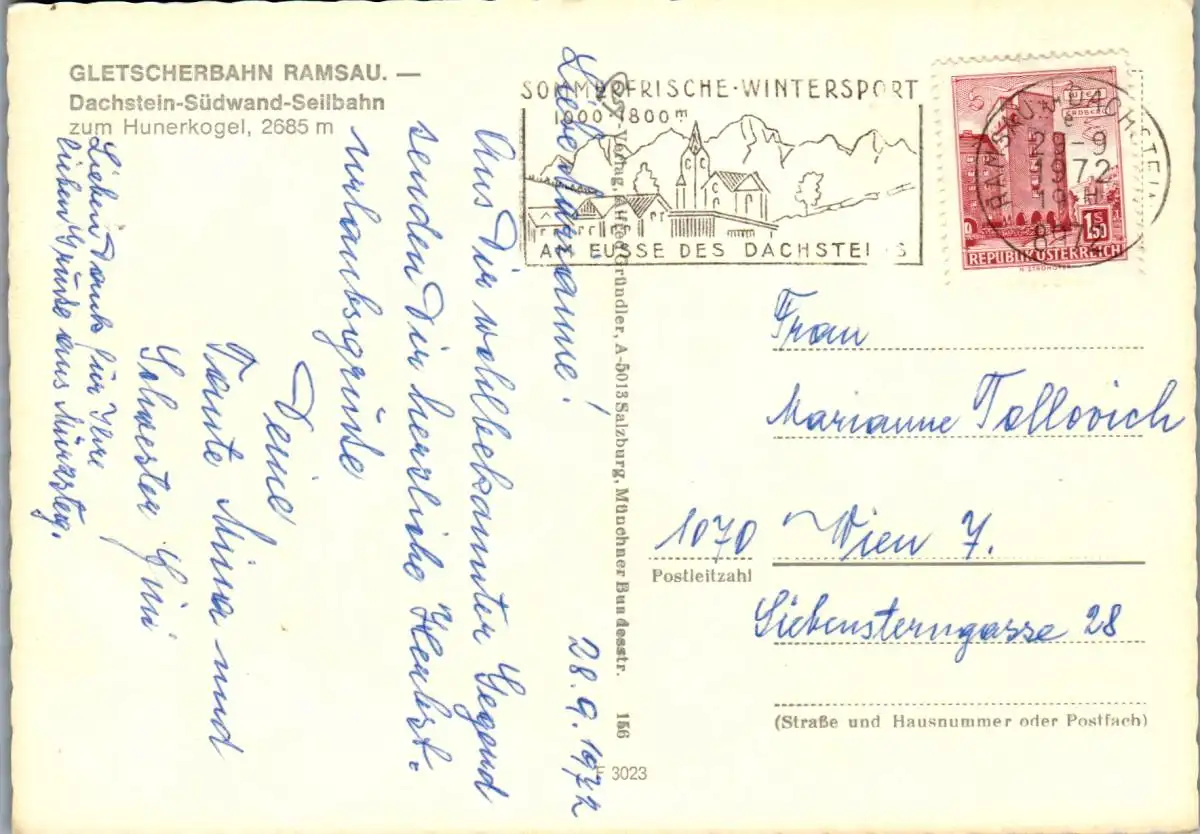 GLETSCHERBAHN RAMSAU. —
Dachstein-Südwand-Seilbahn
zum Hunerkogel, 2685 m
SOMMERFRISCHE·WINTERSPORT
1000 2800m
AM FUSSE DES DACHSTEINS
RAMSAU AM DACHSTEIN
29-9
1972
19 H
REPUBLIK ÖSTERREICH
S 1.50
28. 9. 1972
Liebe Marianne!
Aus Dir wohlbekannter Gegend
senden Dir herzliche Herbst-
urlaubsgrüße
Deine
Tante Mina und
Schwester Grii
Lieben Dank für Ihre
lieben Grüße aus Mürzsteg.
Verlag, Alfred Gründler, A-5013 Salzburg, Münchner Bundesstr. 156
F 3023
Frau
Marianne Tollovich
1070 Wien 7.
Postleitzahl
Siebensterngasse 28
(Straße und Hausnummer oder Postfach)